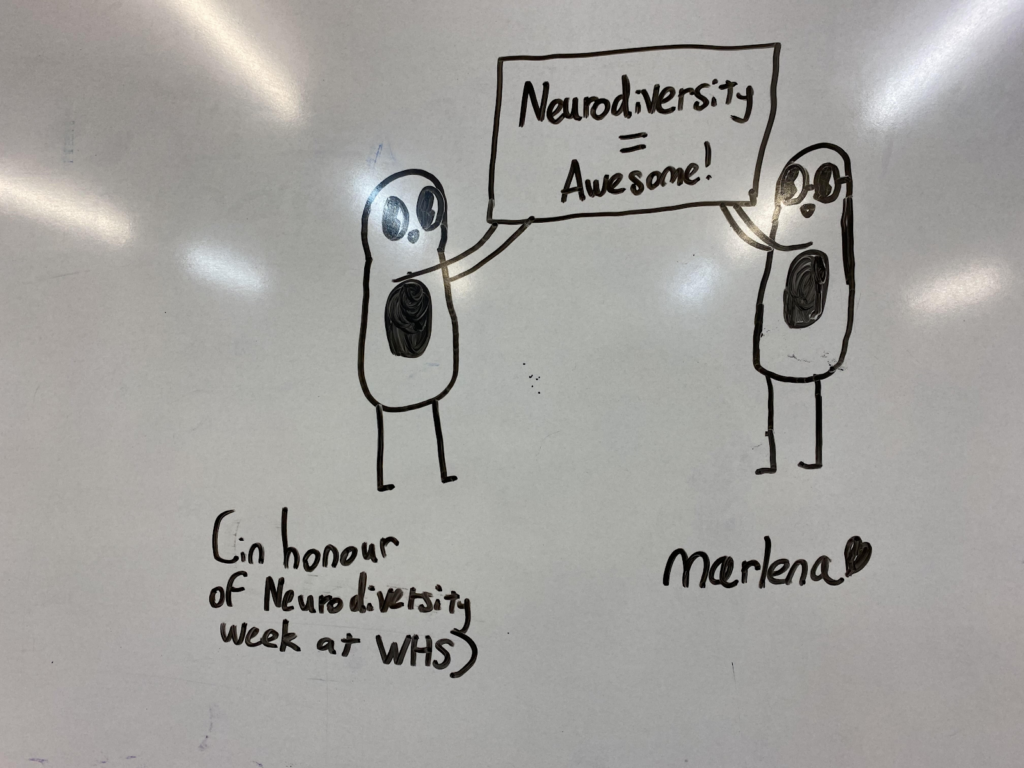 Neurodiversity
=
Awesome!
(in honour
of Neurodiversity
week at WHS)
marlena